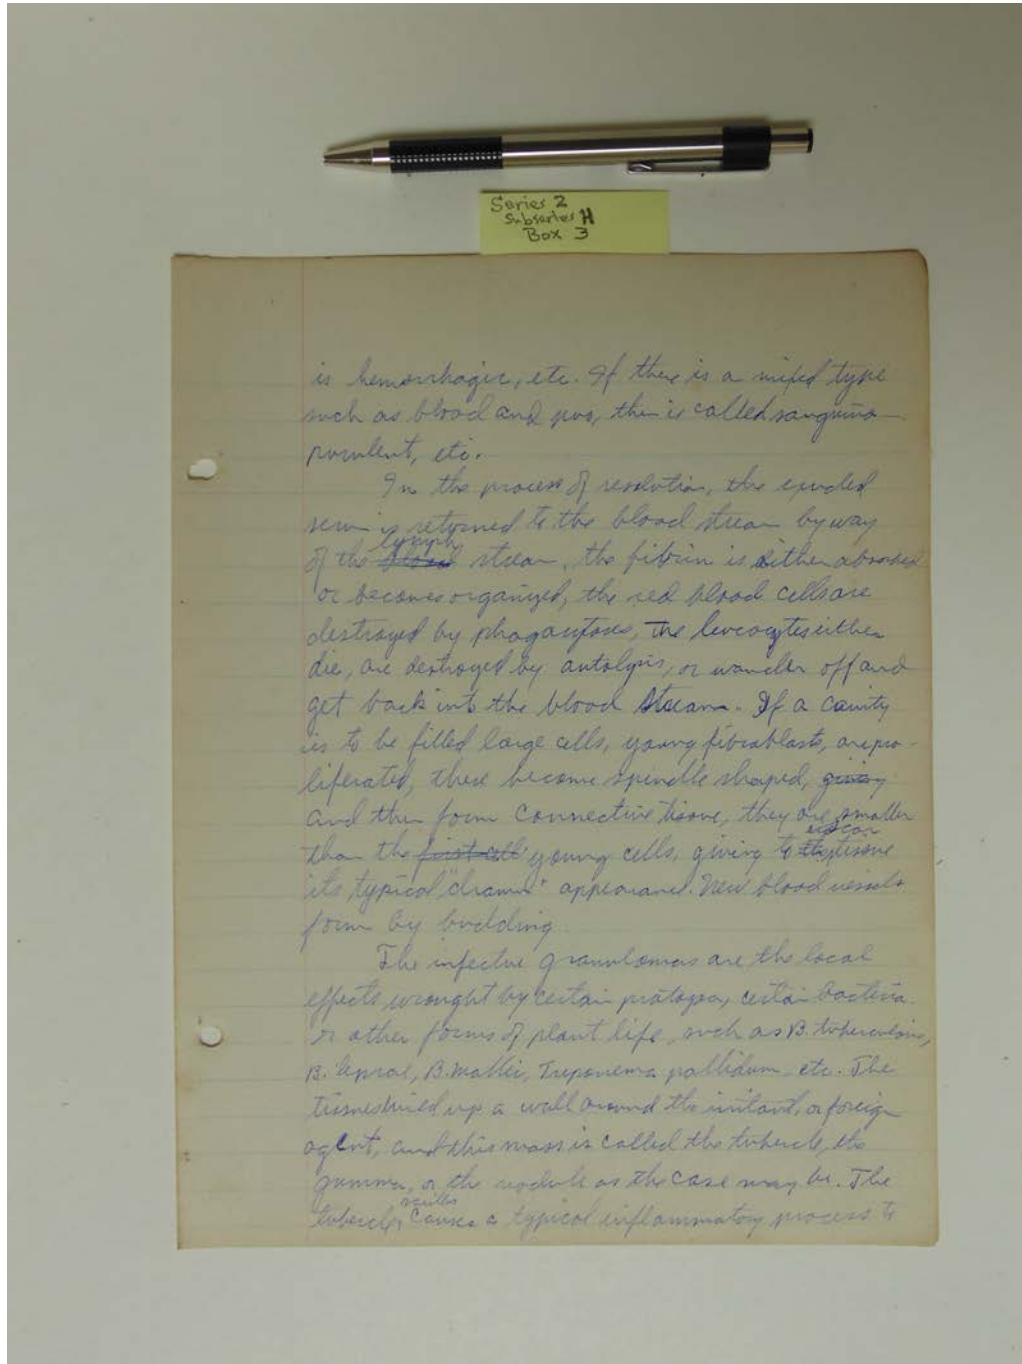 Series 2
Subseries H
Box 3
is hemorrhagic, etc. If there is a mixed type
such as blood and pus, then is called sanguino-
purulent, etc.
In the process of resolution, the exuded
serum is returned to the blood stream by way
lymph
of the blood stream, the fibrin is either absorbed
or becomes organized, the red blood cells are
destroyed by phagocytoses, The leucocytes either
die, are destroyed by autolysis, or wander off and
get back into the blood stream. If a cavity
is to be filled large cells, young fibroblasts, are pro-
liferated, these become spindle shaped, giving
and then form connective tissue, they are smaller
scar
than the first cell young cells, giving to the tissue
its typical appearance. New blood vessels
form by budding.
The infective granulomas are the local
effects wrought by certain protozoa, certain bacteria
or other forms of plant life, such as B. tuberculosis,
B. leprae, B. mallei, Treponema pallidum etc. The
up a wall around the irritant, or foreign
agent, and this mass is called the tubercle, the
gumma, or the nodule as the case may be. The
bacillus
tubercle causes a typical inflammatory process to